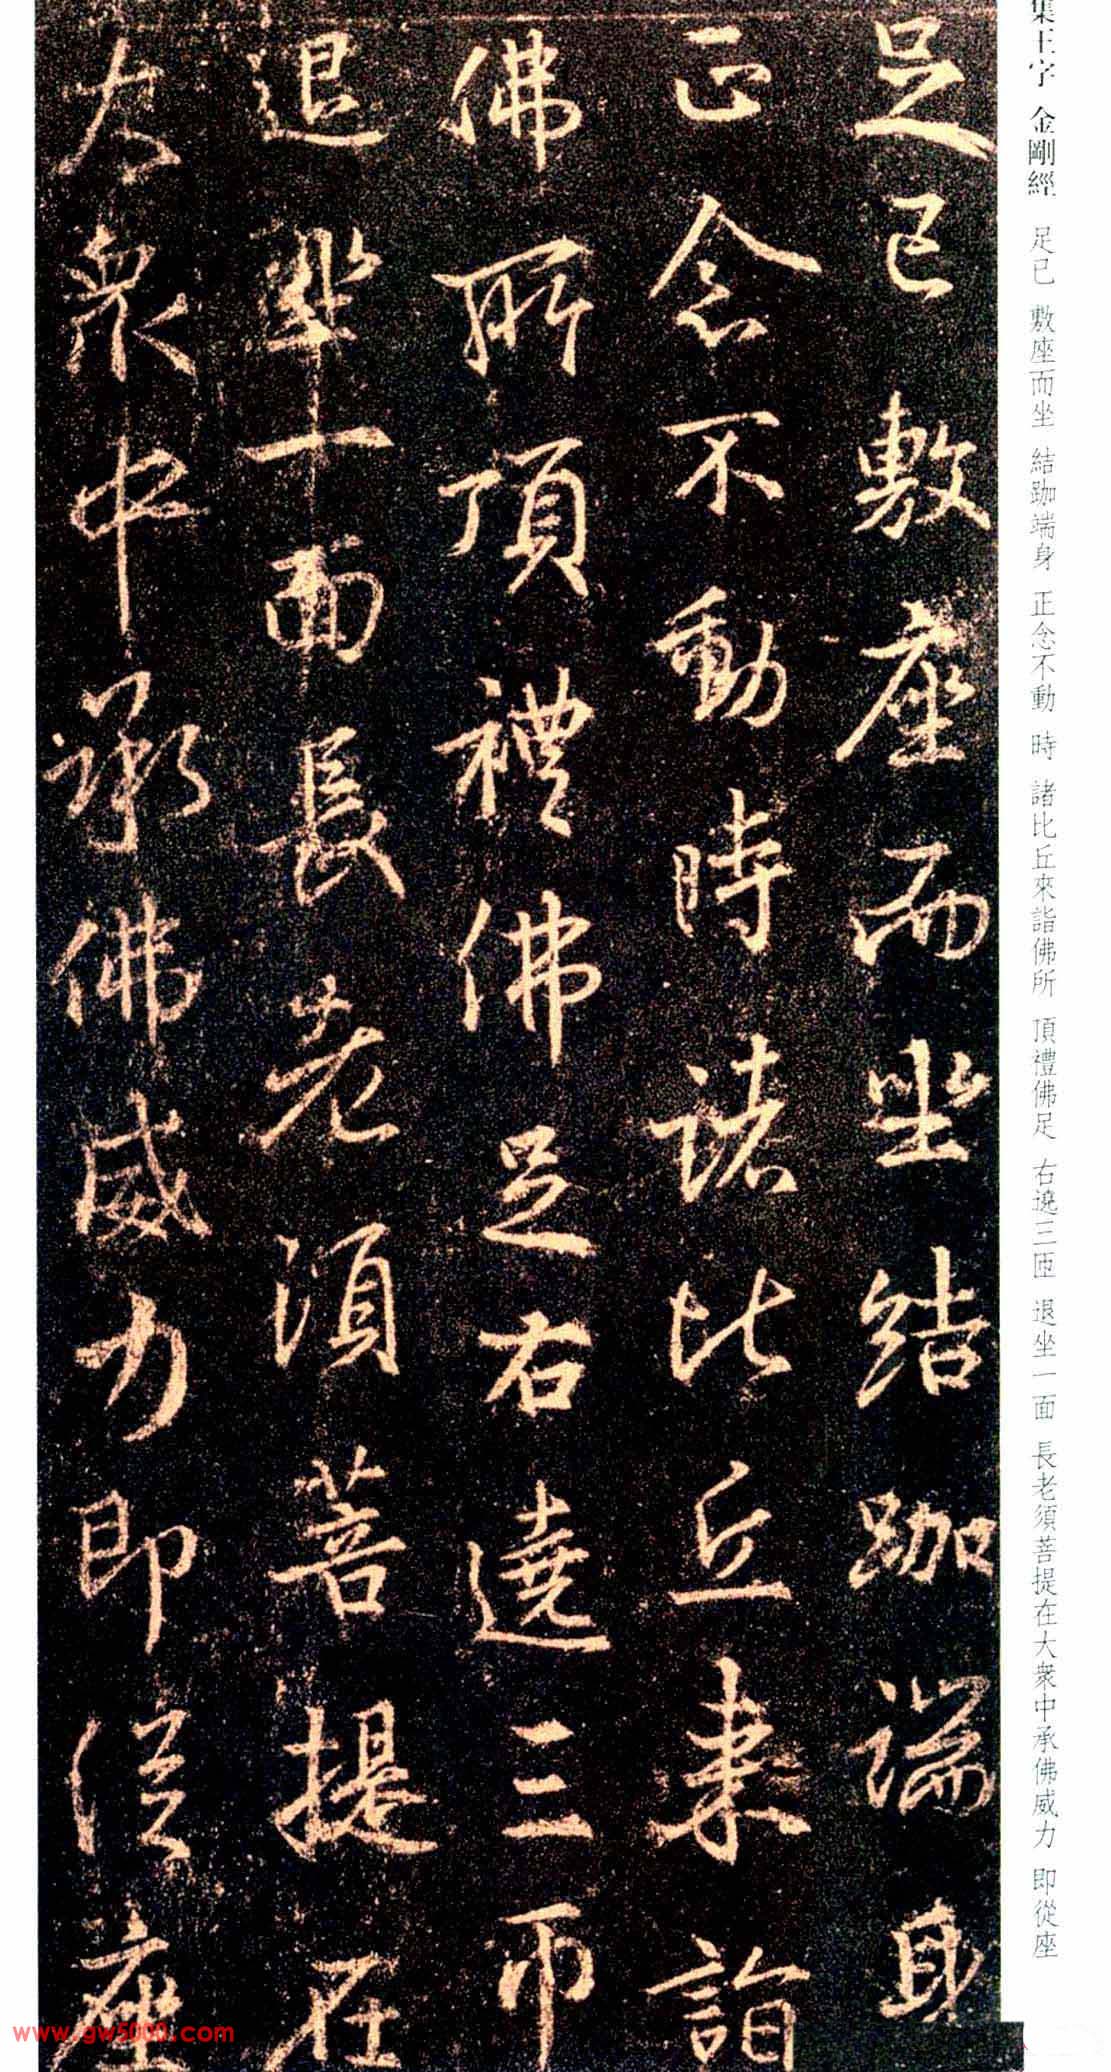 集王字 金剛經 足已 敷座而坐 結跏端身 正念不動 時 諸比丘來詣佛所 頂禮佛足 右遶三匝 退坐一面 長老須菩提在大衆中承佛威力 即從座
足已敷座而坐結跏端身
正念不動時諸比丘来詣
佛所頂禮佛足右遶三帀
退坐一面長老須菩提在
大衆中承佛威力即從座
www.gw5000.com